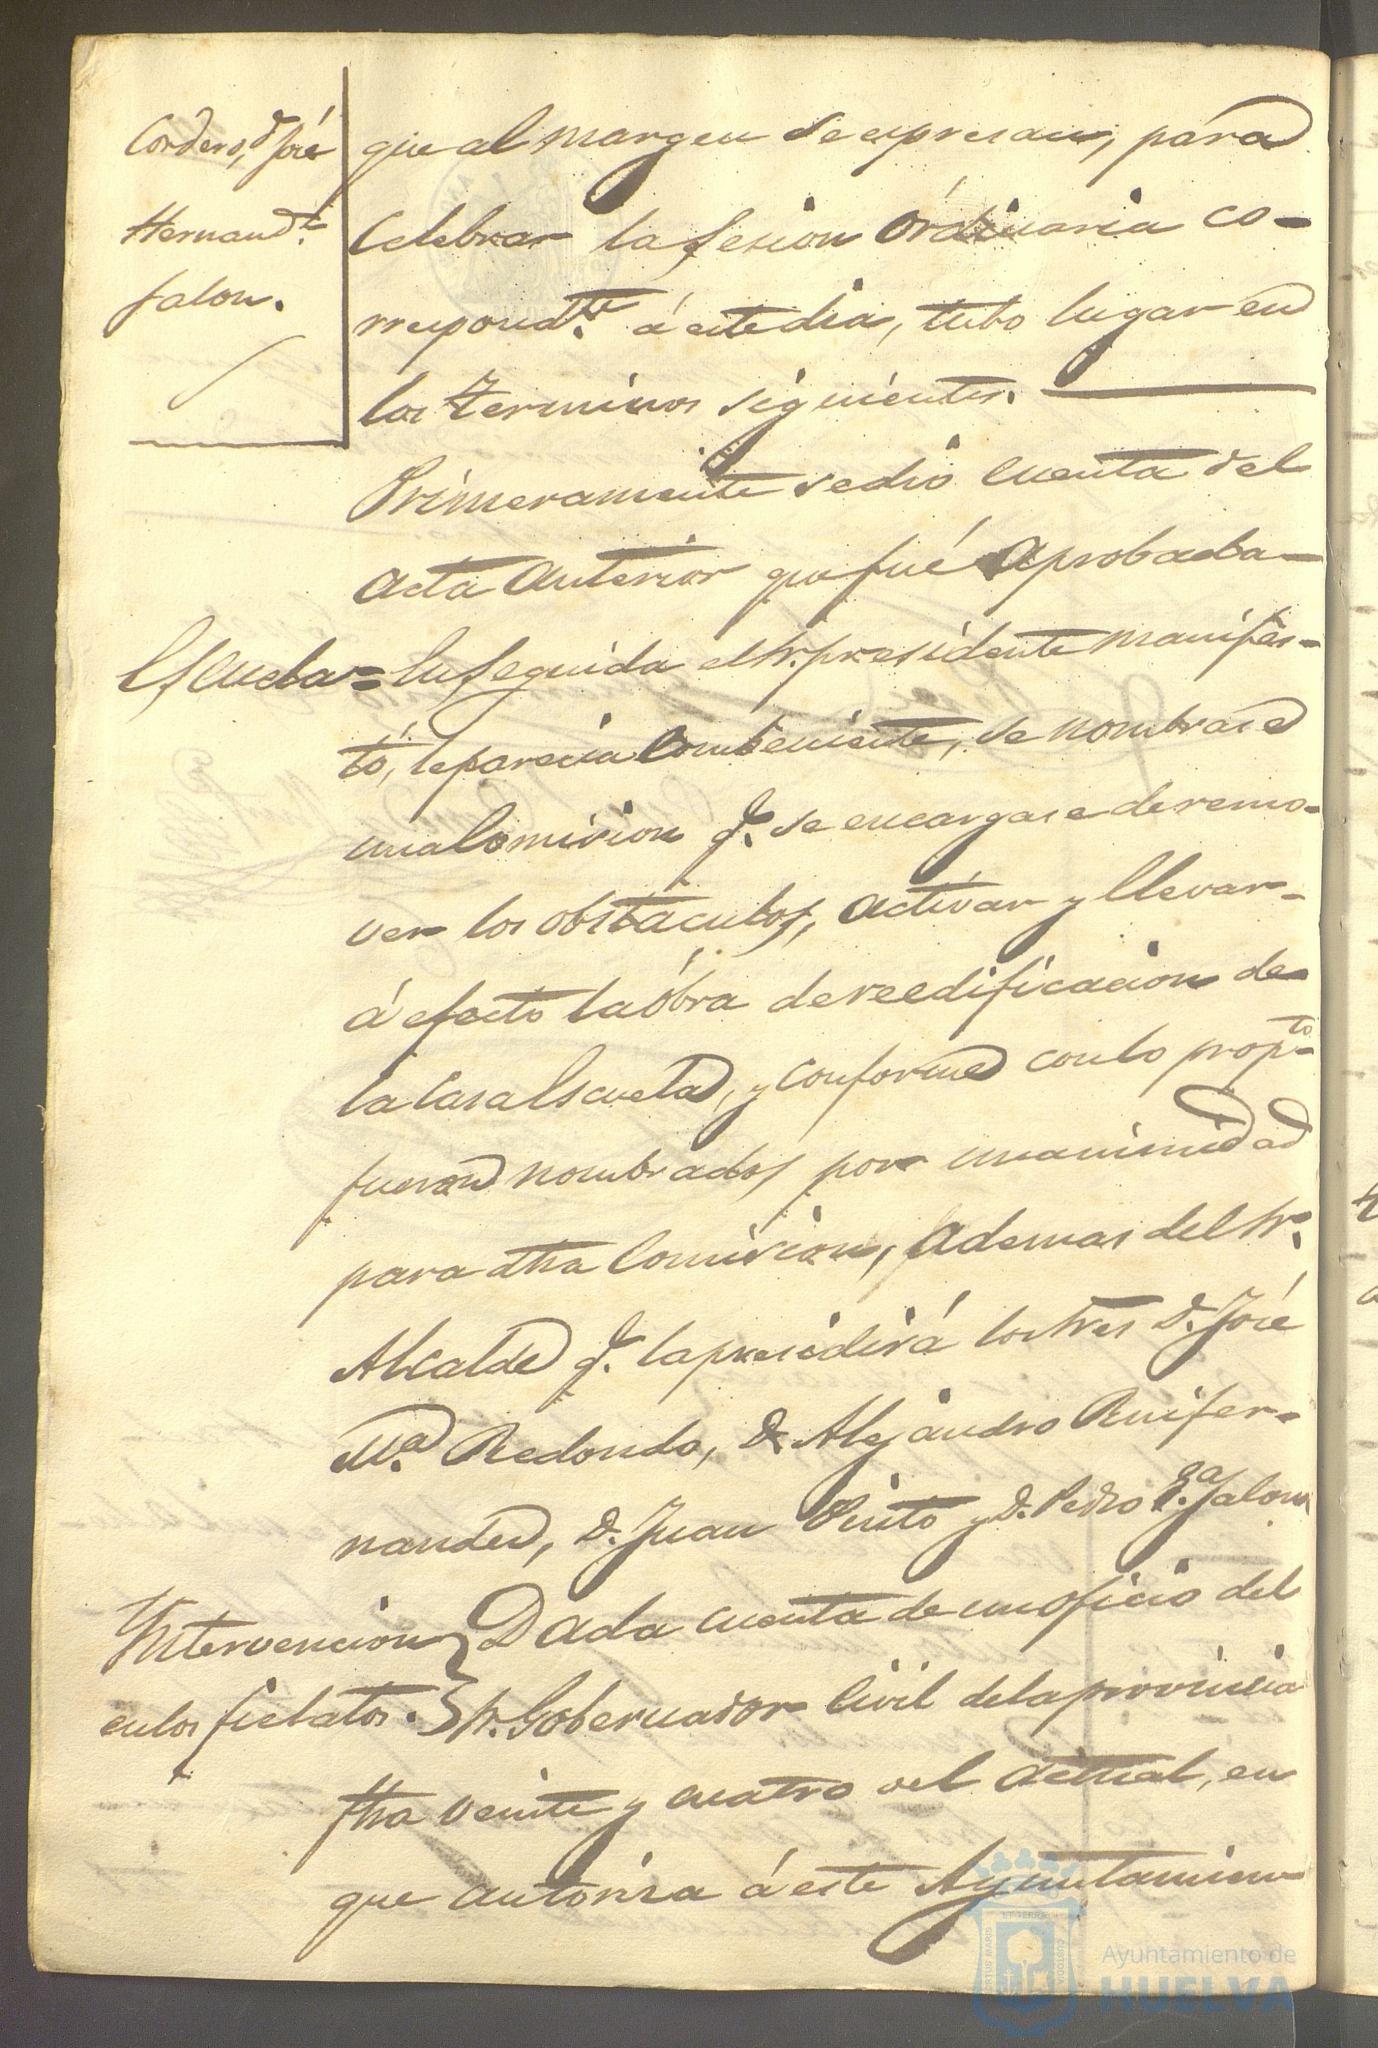 Cordero, d. José
Hernandz.
Jalon.
que al margen se expresan, para
Celebrar la sesion Ordinaria co-
rrespondte. á este dia, tubo lugar en
los terminos siguientes.
Primeramente se dió cuenta del
acta anterior que fué aprobada-
Escuela= En seguida el Sr. presidente manifes-
tó, le parecia Combeniente, se nombrase
una Comision q. se encargase de remo-
ver los obstaculos, activar y llevar-
á efecto la óbra de reedificacion de-
la Casa Escuela, y conforme con lo propto.
fueron nombrados por unanimidad
para dha Comision, Ademas del Sr.
Alcalde q. la presidirá los Sres D. José
Ma. Redondo, D. Alejandro Ruifer-
nandez, D. Juan Pinto y D. Pedro Ga. Jalon
Intervencion
en los fielatos.
Dada cuenta de un oficio del
Sr. Gobernador Civil de la provincia
fha veinte y cuatro del actual, en
que autoriza á este Ayuntamien
Ayuntamiento de
HUELVA